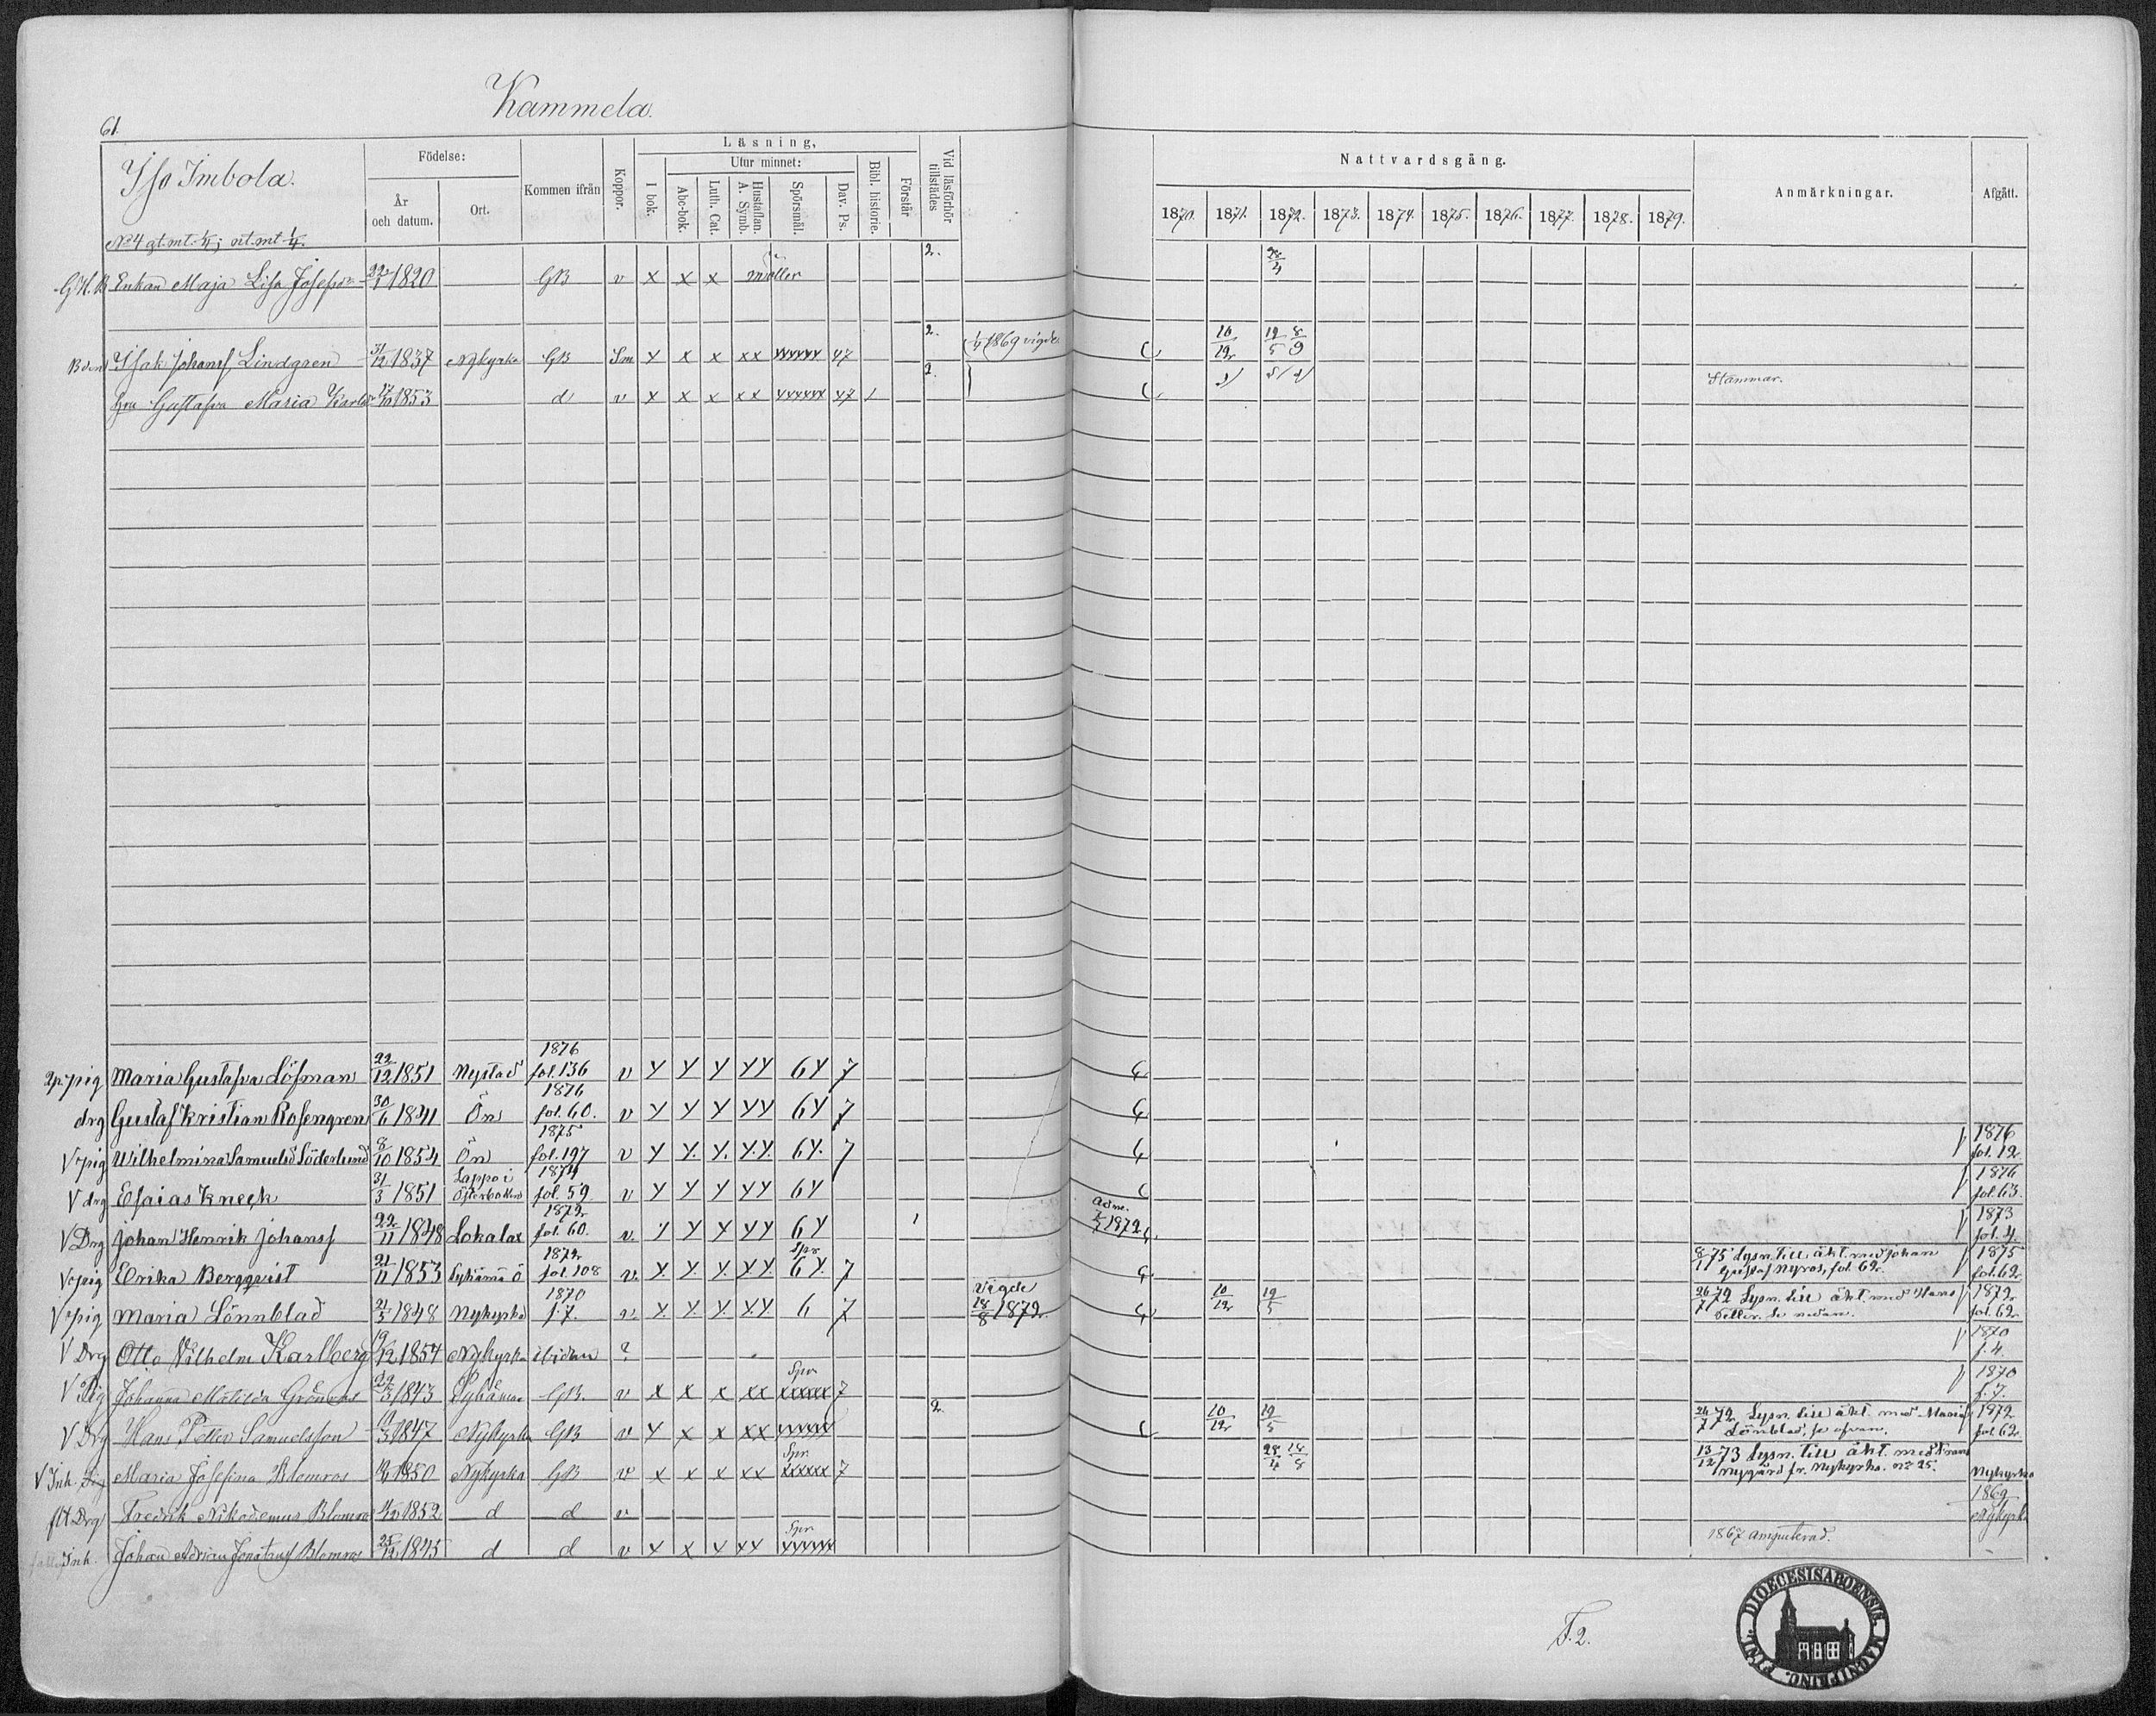 Kammela.
61.
Iso Imbola.
Födelse:
År och datum.
Ort.
Kommen ifrån
Koppor.
Läsning,
I bok.
Utur minnet:
Abc-bok.
Luth. Cat.
Hustaflan. A. Symb.
Spörsmål.
Dav. Ps.
Bibl. historie.
Förstår
Vid läsförhör tillstädes
Nattvardsgång.
1870. 1871. 1872. 1873. 1874. 1875. 1876. 1877. 1878. 1879.
Anmärkningar.
Afgått.
No 4 gt. mt. 1/4; nt. mt 1/4.
2.
Enkan Maja Lisa Josefsdr 1820 GB v x x x 28/4
2. 1869 vigde
Bdn Isak Johanss Lindgren 31/12 1837 Nykyrka GB Sm x x x xx xxxxxx 47 10/12 19/5 8/9
2.
Hru Gustafva Maria Karlsdr 17/10 1853 d v x x x xx xxxxxx 47 1 Stammar.
1876
pig Maria Gustafva Löfman 22/12 1851 Nystad fol. 136 v x x x xx 6x 7
1876
drg Gustaf Kristian Rosengren 30/6 1841 Ön fol. 60. v x x x xx 6x 7
1875 1876
V pig Wilhelmina Samuelsd Söderlund 8/10 1854 Ön fol. 197 v x x. x. x.x. 6x. 7 fol. 12
Lappo i 1874 1876
V drg Esaias Kneck 31/3 1851 Österbotten fol. 59 v x x x xx 6x fol. 63.
1872 Adm. 1873
V Drg Johan Henrik Johanss 22/11 1848 Lokalax fol. 60. v. x x x xx 6x 1 1872 fol. 4.
1872 Spr 8/1 75 Lysn. till äkt. med Johan 1875
V pig Erika Bergqvist 21/11 1853 Pyhämä Ö fol. 108 v. x. x. x. x.x. 6x. 7 Gustaf Nyros, fol. 62. fol. 62
1870 Vigde 26/7 72 Lysn. till äkt. med Hans 1872
V pig Maria Lönnblad 21/5 1848 Nykyrka f. 7. v. x. x. x. x.x. 6 7 18/8 1872. 10/12 19/5 Petter. Se nedan. fol. 62
1870
V Drg Otto Vilhelm Karlberg 19/12 1854 Nykyrka ibidem ? f. 4.
Spr 1870
V Pig Johanna Matilda Grönroos 29/3 1843 Pyhämä GB. v x x x xx xxxxxx 7 f. 7.
2 26/7 72. Lysn. till äkt. med Maria 1872
V Drg Hans Petter Samuelsson 1847 Nykyrka GB v x x x xx xxxxxx 10/12 19/5 Lönnblad, se ofvan. fol. 62
Spr. 13/12 73 Lysn. till äkt. med Frans
V Inh. Pig Maria Josefina Blomros 1850 Nykyrka GB v x x x xx xxxxxx 7 28/4 18/8 Nygård fr. Nykyrka. no 25. Nykyrka
1869
flt Drg Fredrik Nikodemus Blomros 1852 d d v Nykyrka
Spr.
Inh. Johan Adrian Jonatans Blomros 25/12 1845 d d v x x x xx xxxxxx 1867 amputerad.
F. 2.
SIGIL. DIOECESIS ABOENSIS. MAGNI PRINC. FINL.